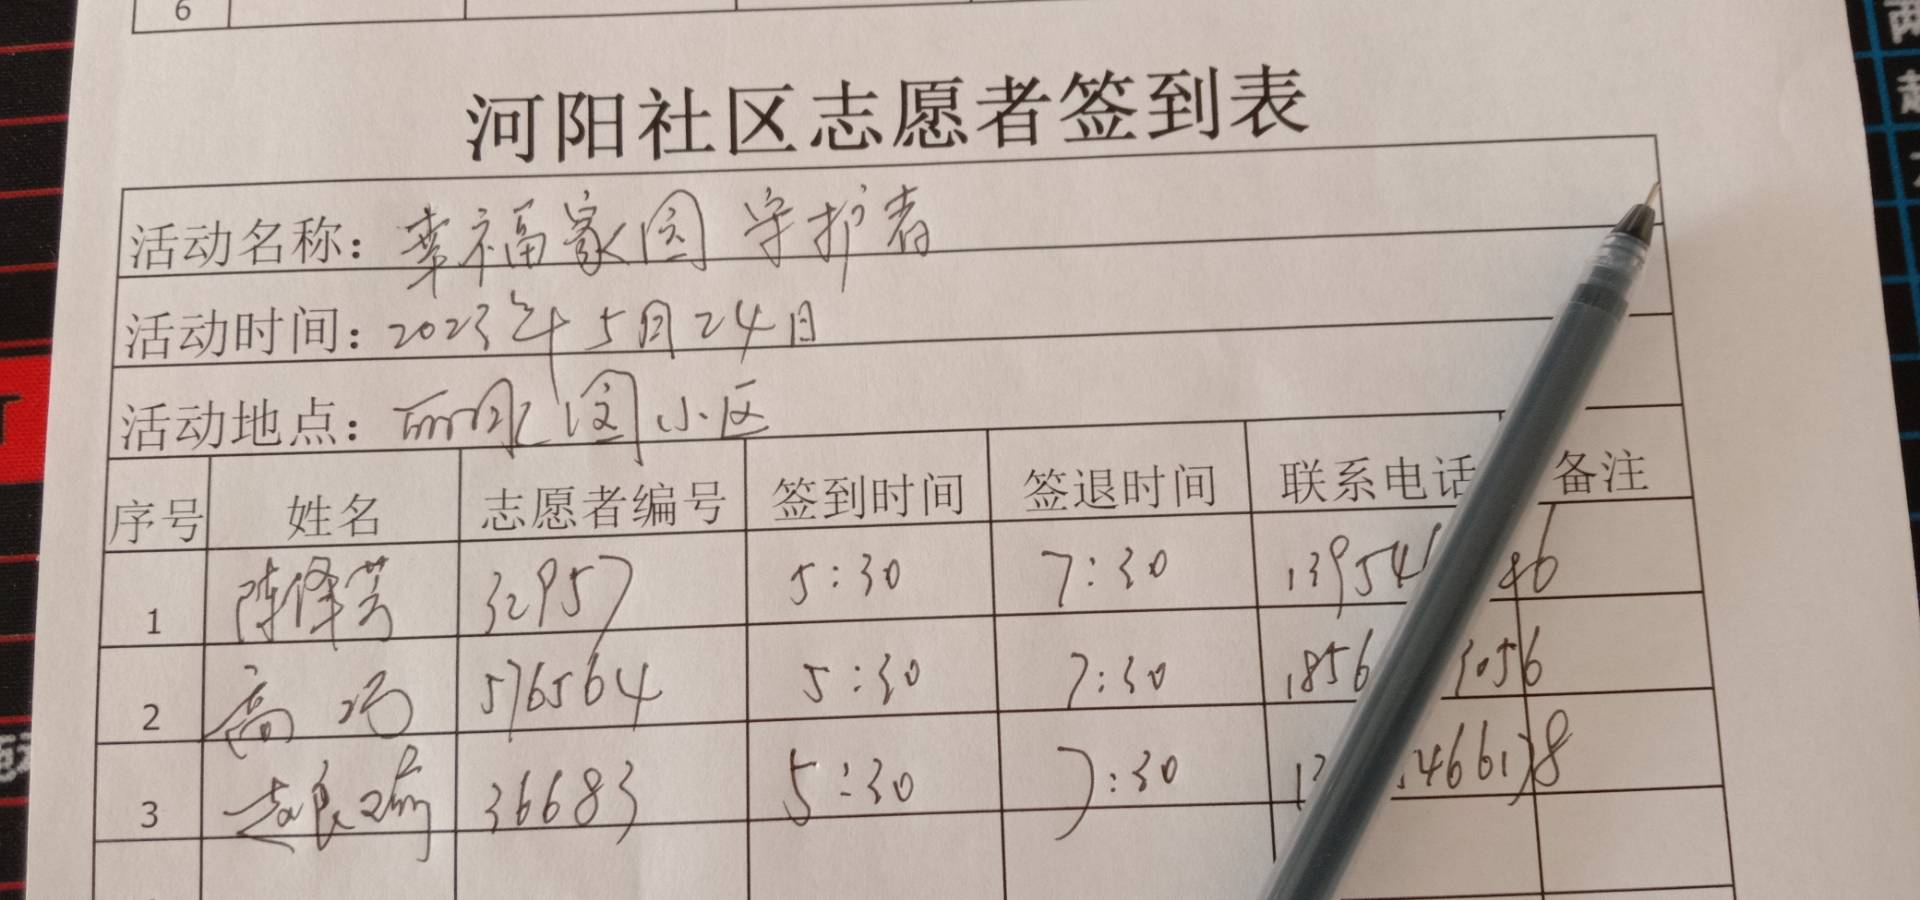 6
河阳社区志愿者签到表
活动名称：幸福家园 守护者
活动时间：2023年5月24日
活动地点：丽水园小区
序号 姓名 志愿者编号 签到时间 签退时间 联系电话 备注
1 陈泽芳 32957 5:30 7:30 13954 46
2 高巧 576564 5:30 7:30 1856 3056
3 赵良瑜 36683 5:30 7:30 13 466138